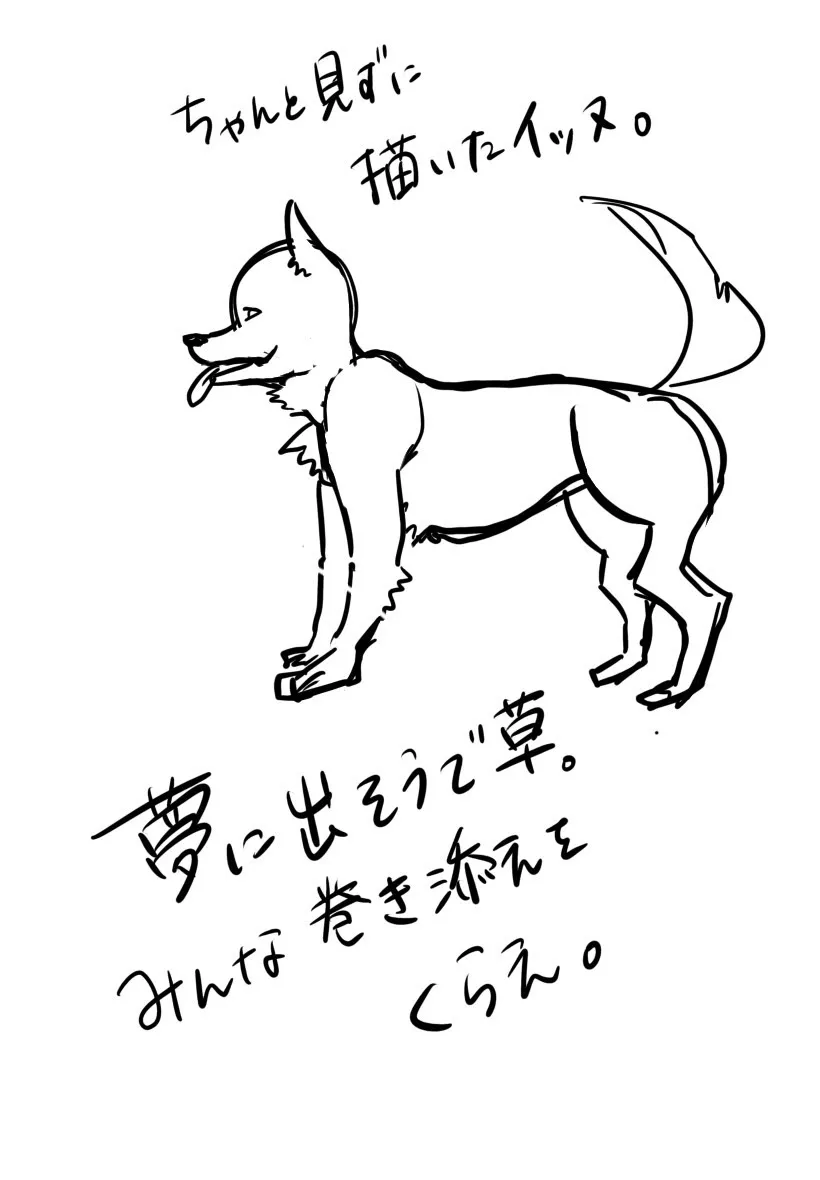 ちゃんと見ずに
描いたイッヌ。
夢に出そうで草。
みんな巻き添えを
くらえ。